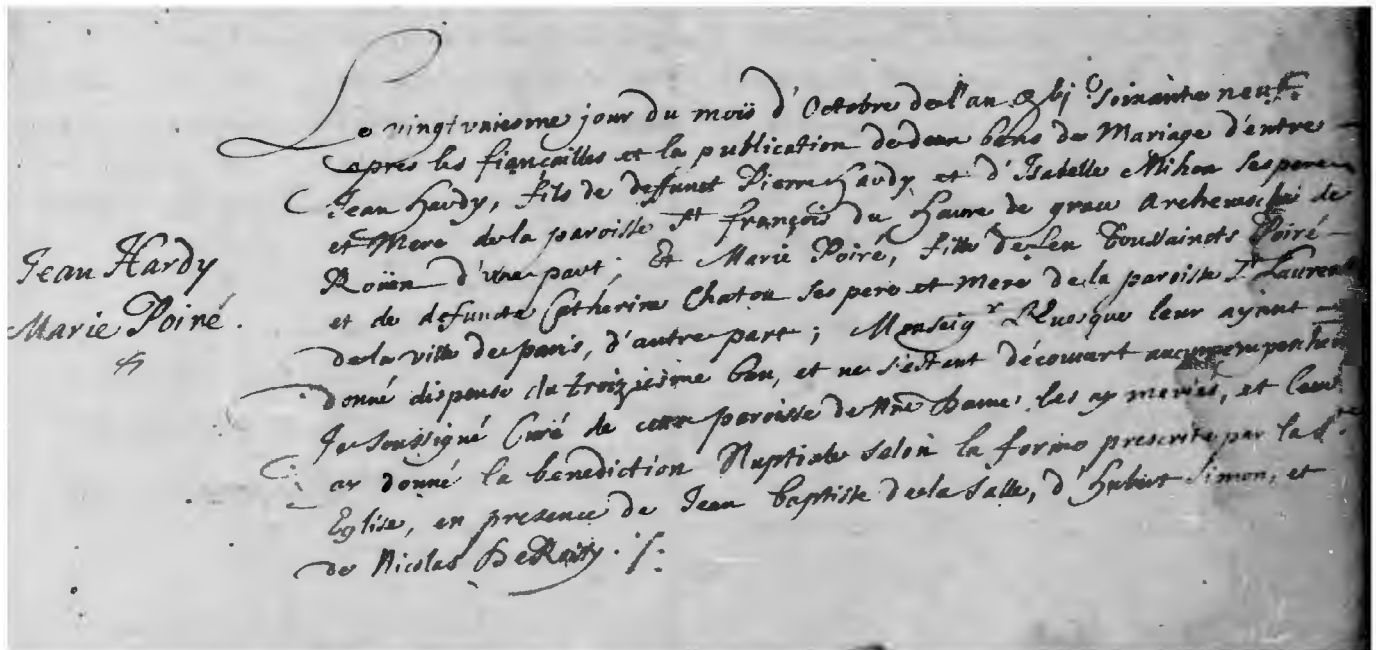 Jean Hardy
Marie Poiré.
Le vingt uniesme jour du mois d'Octobre de l'an soixante neuf
apres les fiançailles et la publication de deux bans de Mariage d'entre
Jean Hardy, fils de deffunct Pierre Hardy et d'Isabelle Mihou ses pere
et Mere de la paroisse St françois du Havre de grace Archevesché de
Roüen d'une part; Et Marie Poiré, fille de feu Toussaincts Poiré
et de defuncte Catherine Chatou ses pere et mere de la paroisse St Laurent
de la ville de paris, d'autre part; Monseigr L'Evesque leur ayant
donné dispense du troiziesme ban, et ne s'estant découvert aucun empeschemt
Je Soussigné Curé de cette paroisse de Nre Dame les ay mariés, et leur
ay donné la benediction Nuptiale selon la forme prescrite par la Ste
Eglise, en presence de Jean baptiste de la Salle, d'hubert Simon, et
de Nicolas